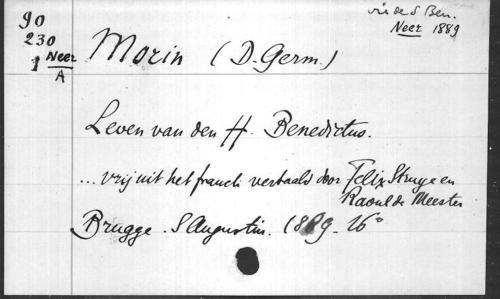 90
230
1 Neer
A
vie de S Ben.
Neer 1889
Morin (D. Germ.)
Leven van den H. Benedictus.
... vrij uit het fransch vertaald door Felix Struye en
Raoul de Meester
Brugge. S Augustin. 1889. 16°